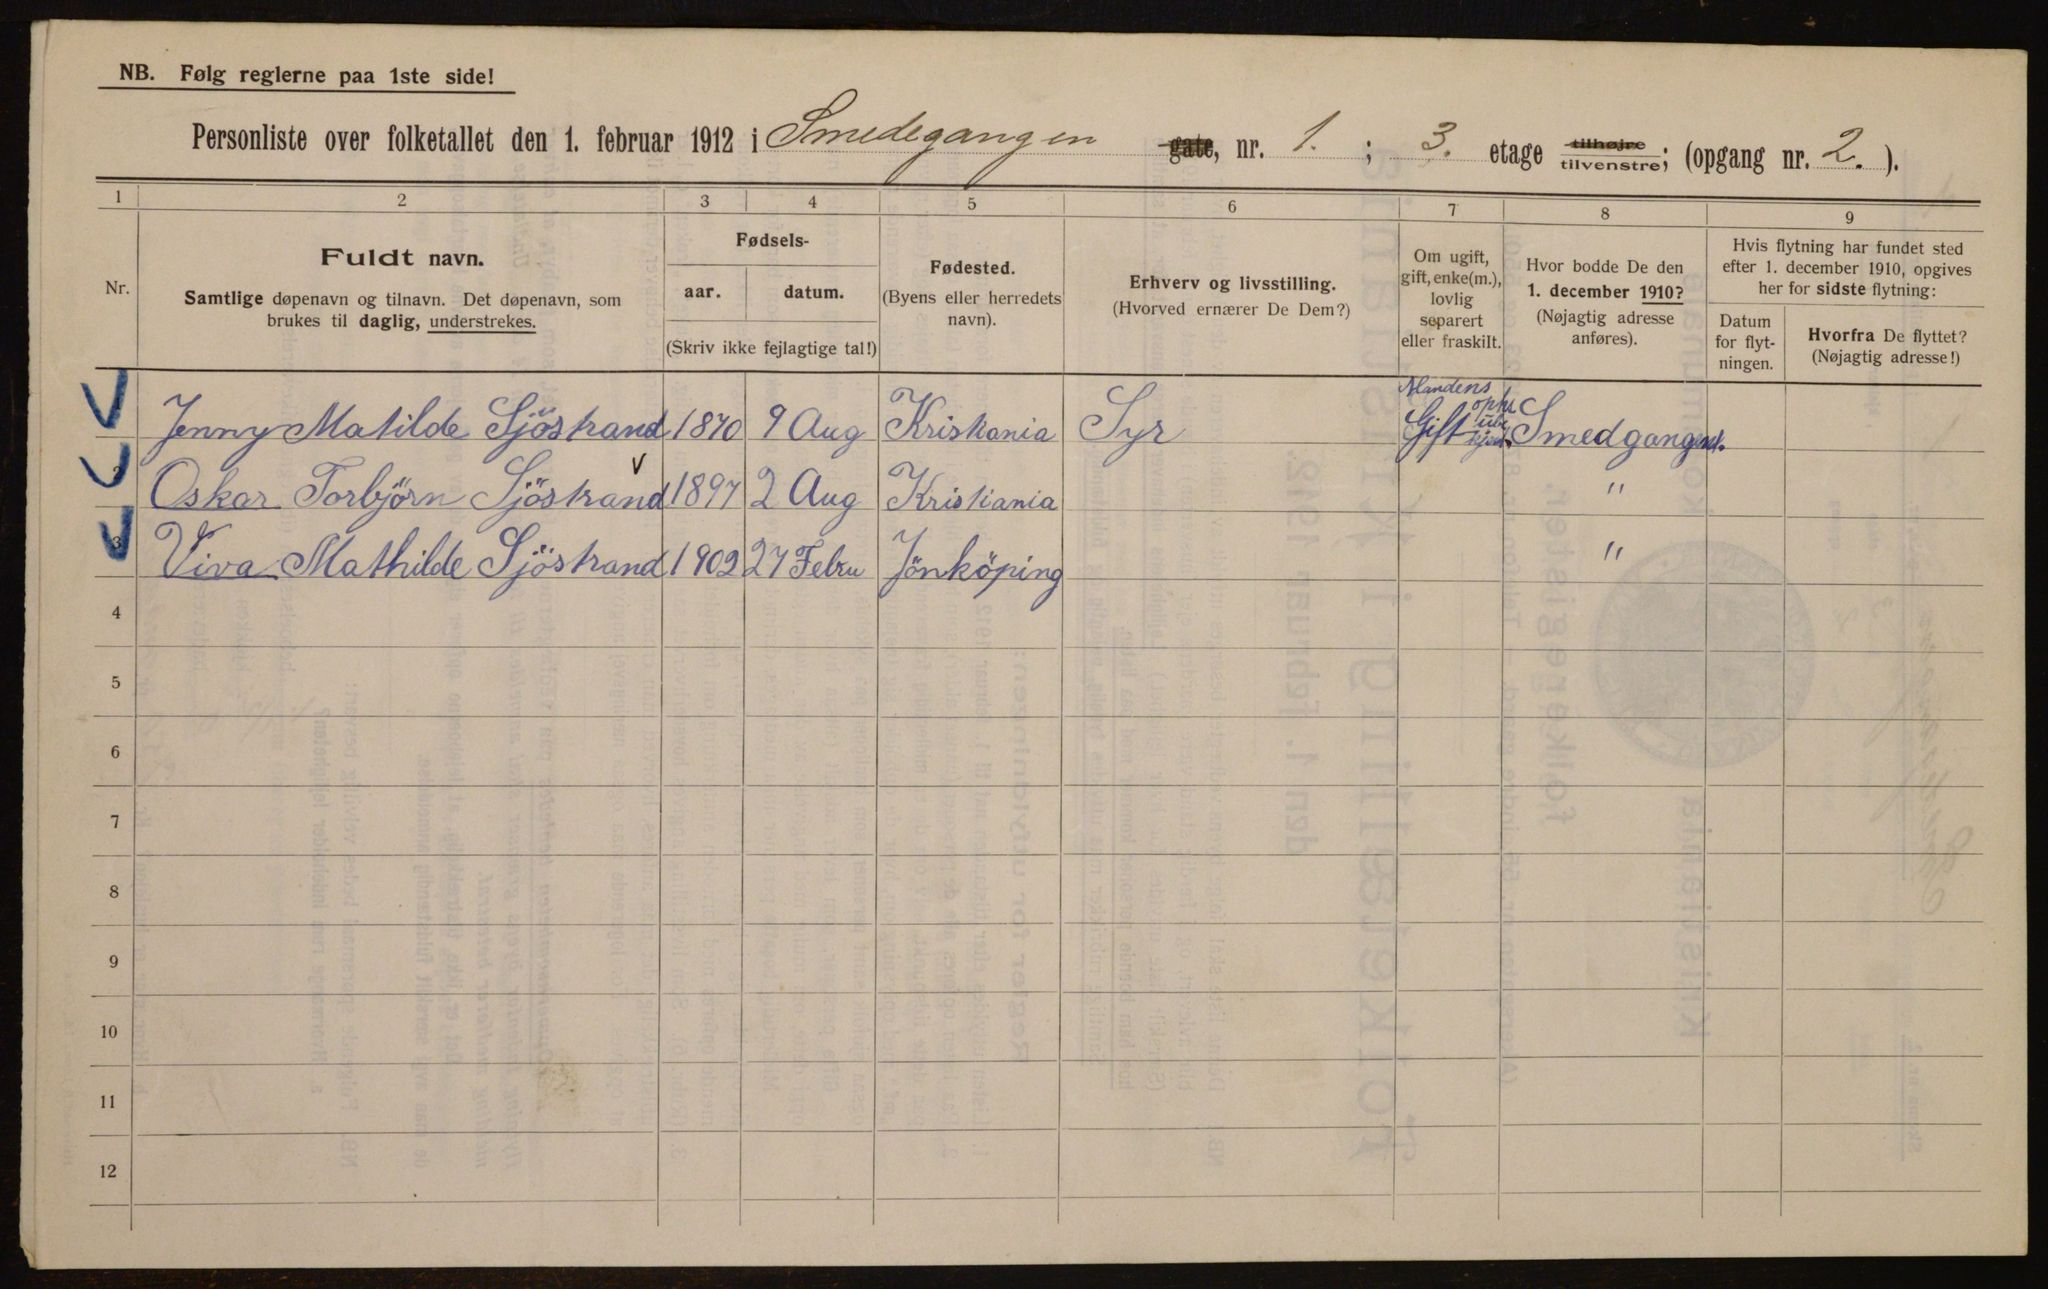 NB. Følg reglerne paa 1ste side!
Personliste over folketallet den 1. februar 1912 i Smedegangen gate, nr. 1. ; 3. etage tilhøjre tilvenstre; (opgang nr. 2. ).
1 2 3 4 5 6 7 8 9
Nr.
Fuldt navn.
Samtlige døpenavn og tilnavn. Det døpenavn, som
brukes til daglig, understrekes.
Fødsels-
aar. datum.
(Skriv ikke fejlagtige tal!)
Fødested.
(Byens eller herredets
navn).
Erhverv og livsstilling.
(Hvorved ernærer De Dem?)
Om ugift,
gift, enke(m.),
lovlig
separert
eller fraskilt.
Hvor bodde De den
1. december 1910?
(Nøjagtig adresse
anføres).
Hvis flytning har fundet sted
efter 1. december 1910, opgives
her for sidste flytning:
Datum
for flyt-
ningen.
Hvorfra De flyttet?
(Nøjagtig adresse!)
Mandens
Jenny Matilde Sjöstrand 1870 9 Aug Kristiania Syr Gift Smedgangen 1.
2 Oskar Torbjørn Sjöstrand 1897 2 Aug Kristiania "
3 Viva Mathilde Sjöstrand 1902 27 Febru Jönköping "
4
5
6
7
8
9
10
11
12